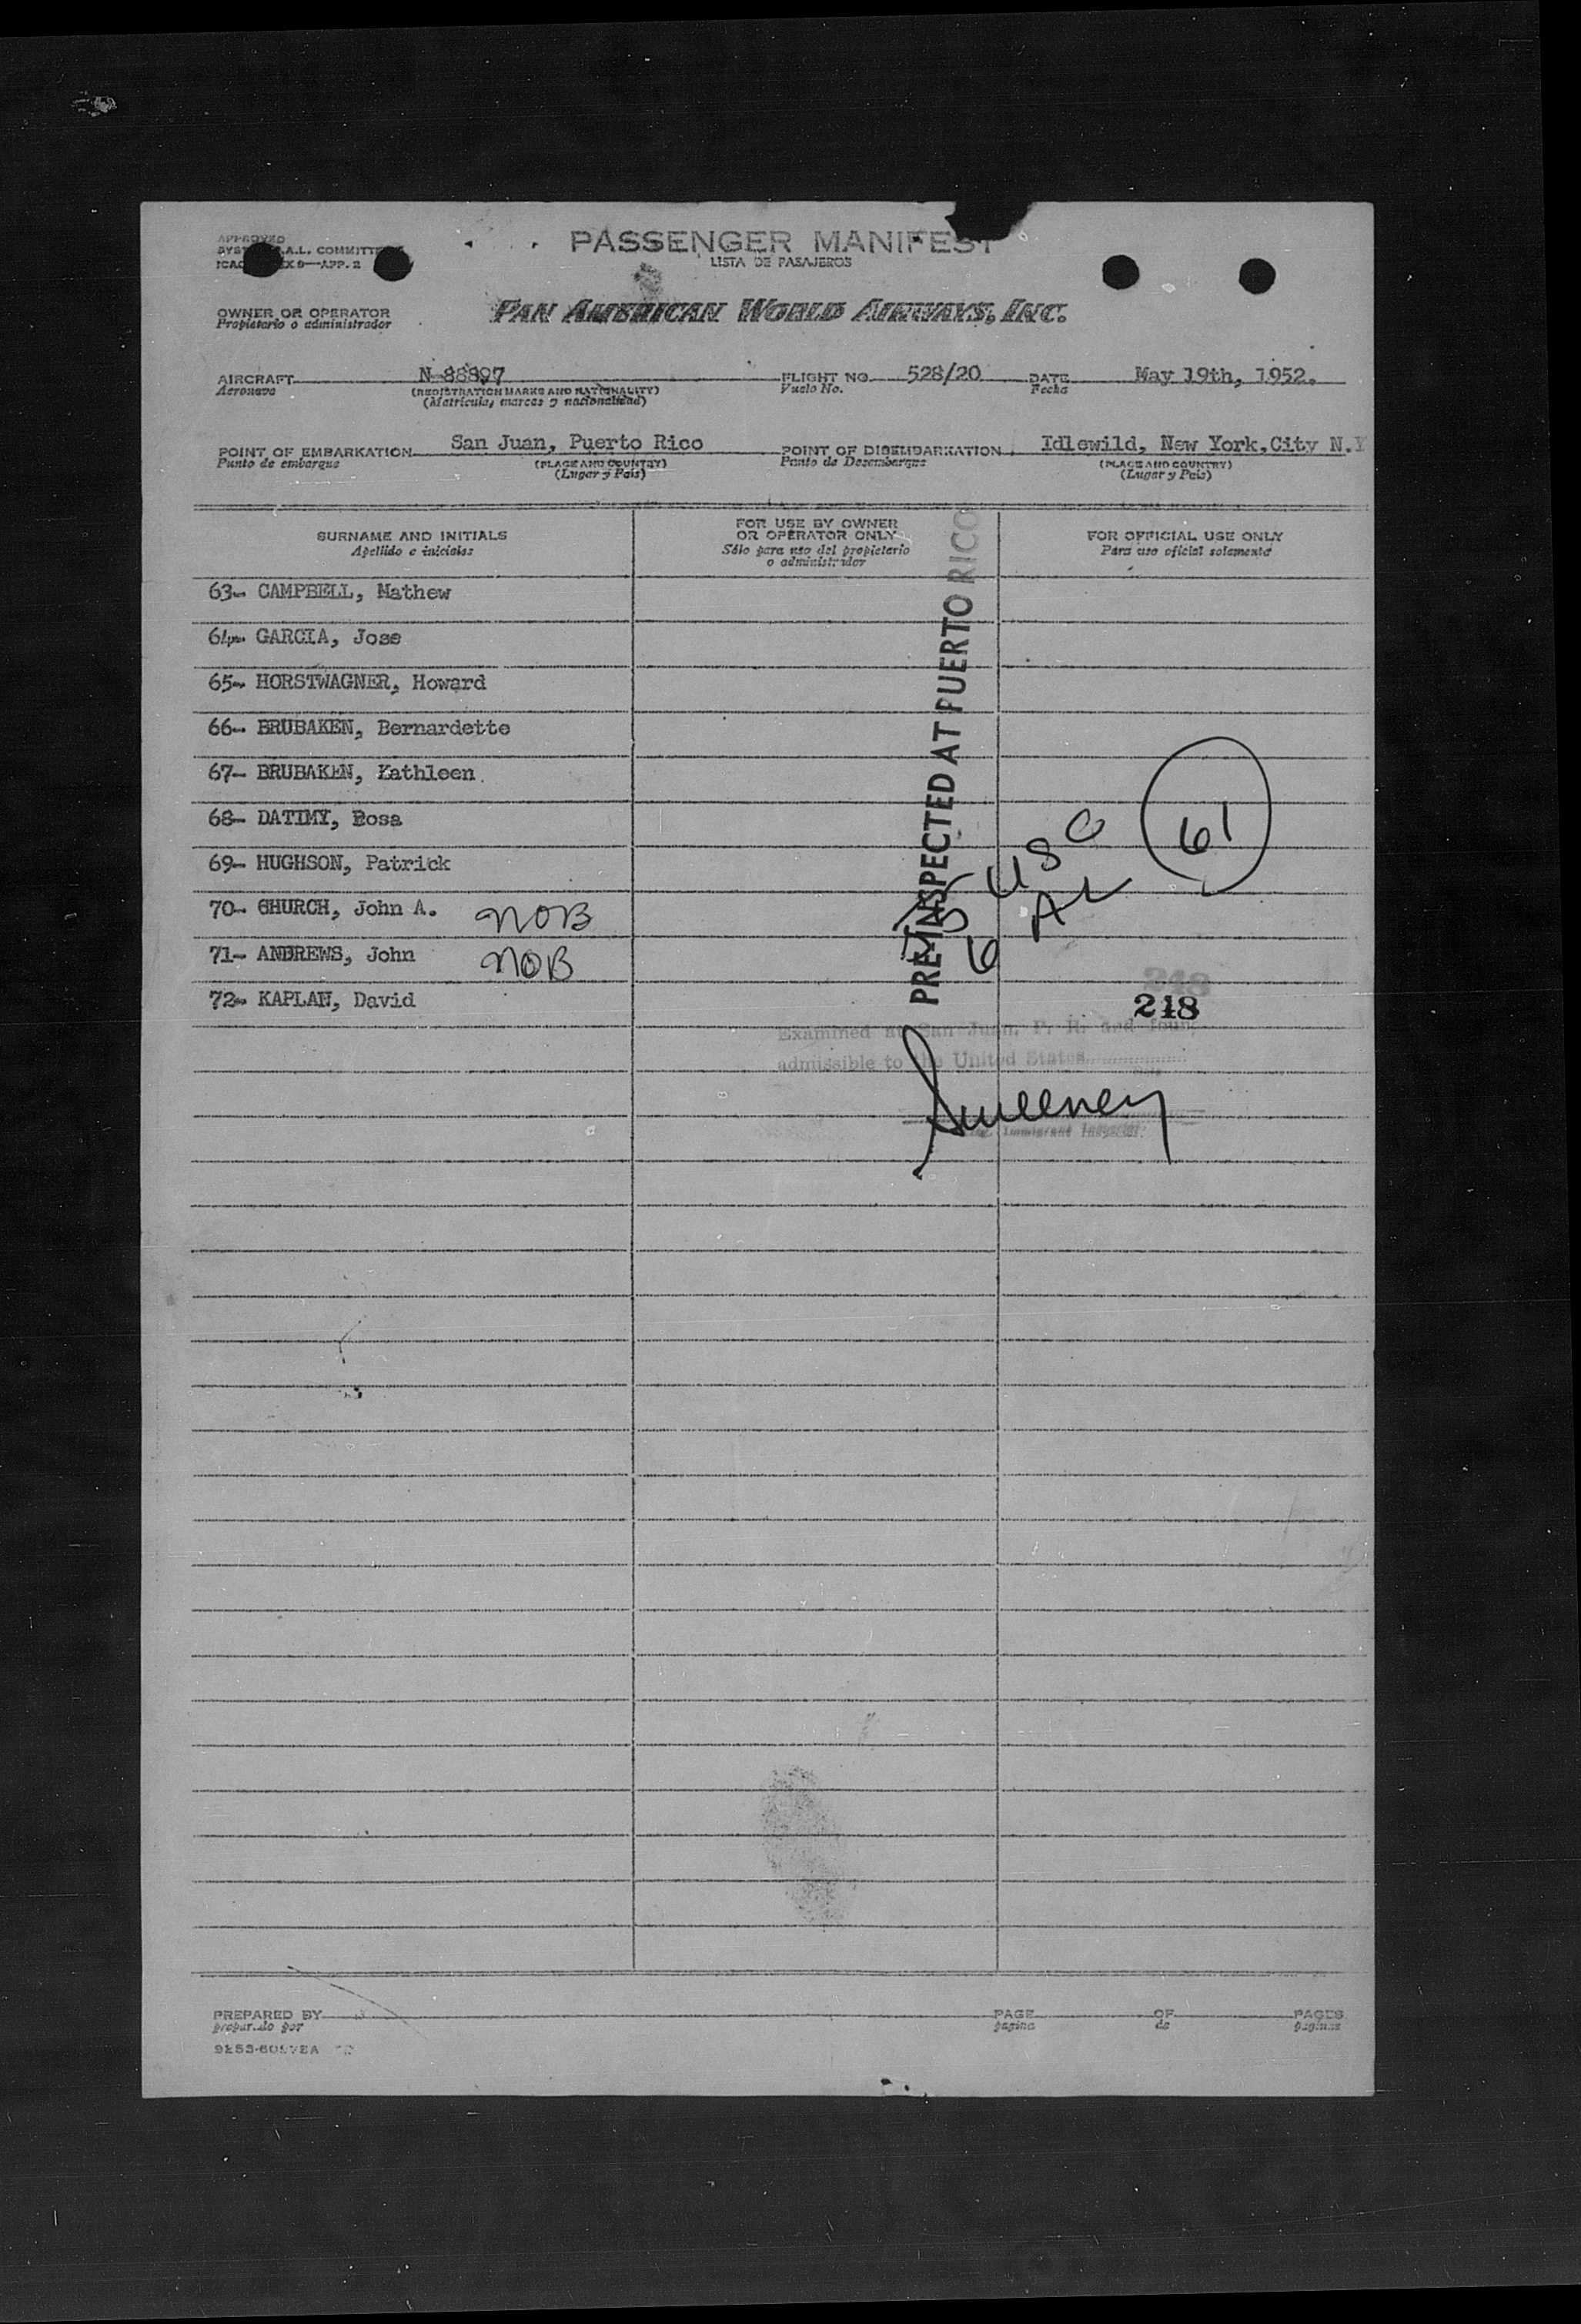 APPROVED
PASSENGER MANIFEST
A.L. COMMITTEE
LISTA DE PASAJEROS
9—APP. 2
OWNER OR OPERATOR
Propietario o administrador
PAN AMERICAN WORLD AIRWAYS, INC.
AIRCRAFT N-88897 FLIGHT NO. 528/20 DATE May 19th, 1952.
Aeronave (REGISTRATION MARKS AND NATIONALITY) Vuelo No. Fecha
(Matricula, marcas y nacionalidad)
POINT OF EMBARKATION San Juan, Puerto Rico POINT OF DISEMBARKATION Idlewild, New York,City N.Y
Punto de embarque (PLACE AND COUNTRY) Punto de Desembarque (PLACE AND COUNTRY)
(Lugar y Pais) (Lugar y Pais)
SURNAME AND INITIALS
Apellido e iniciales
FOR USE BY OWNER
OR OPERATOR ONLY
Sólo para uso del propietario
o administrador
FOR OFFICIAL USE ONLY
Para uso oficial solamente
63- CAMPBELL, Mathew
64- GARCIA, Jose
65- HORSTWAGNER, Howard
66- BRUBAKEN, Bernardette
67- BRUBAKEN, Kathleen
68- DATIMY, Rosa
69- HUGHSON, Patrick
70- CHURCH, John A. NOB
71- ANDREWS, John NOB
72- KAPLAN, David
PRE-INSPECTED AT PUERTO RICO
USC
6 AL
61
248
248
Examined at San Juan, P. R. and found
admissible to the United States
Sweeney
Immigrant Inspector
PREPARED BY PAGE OF PAGES
preparado por pagina de paginas